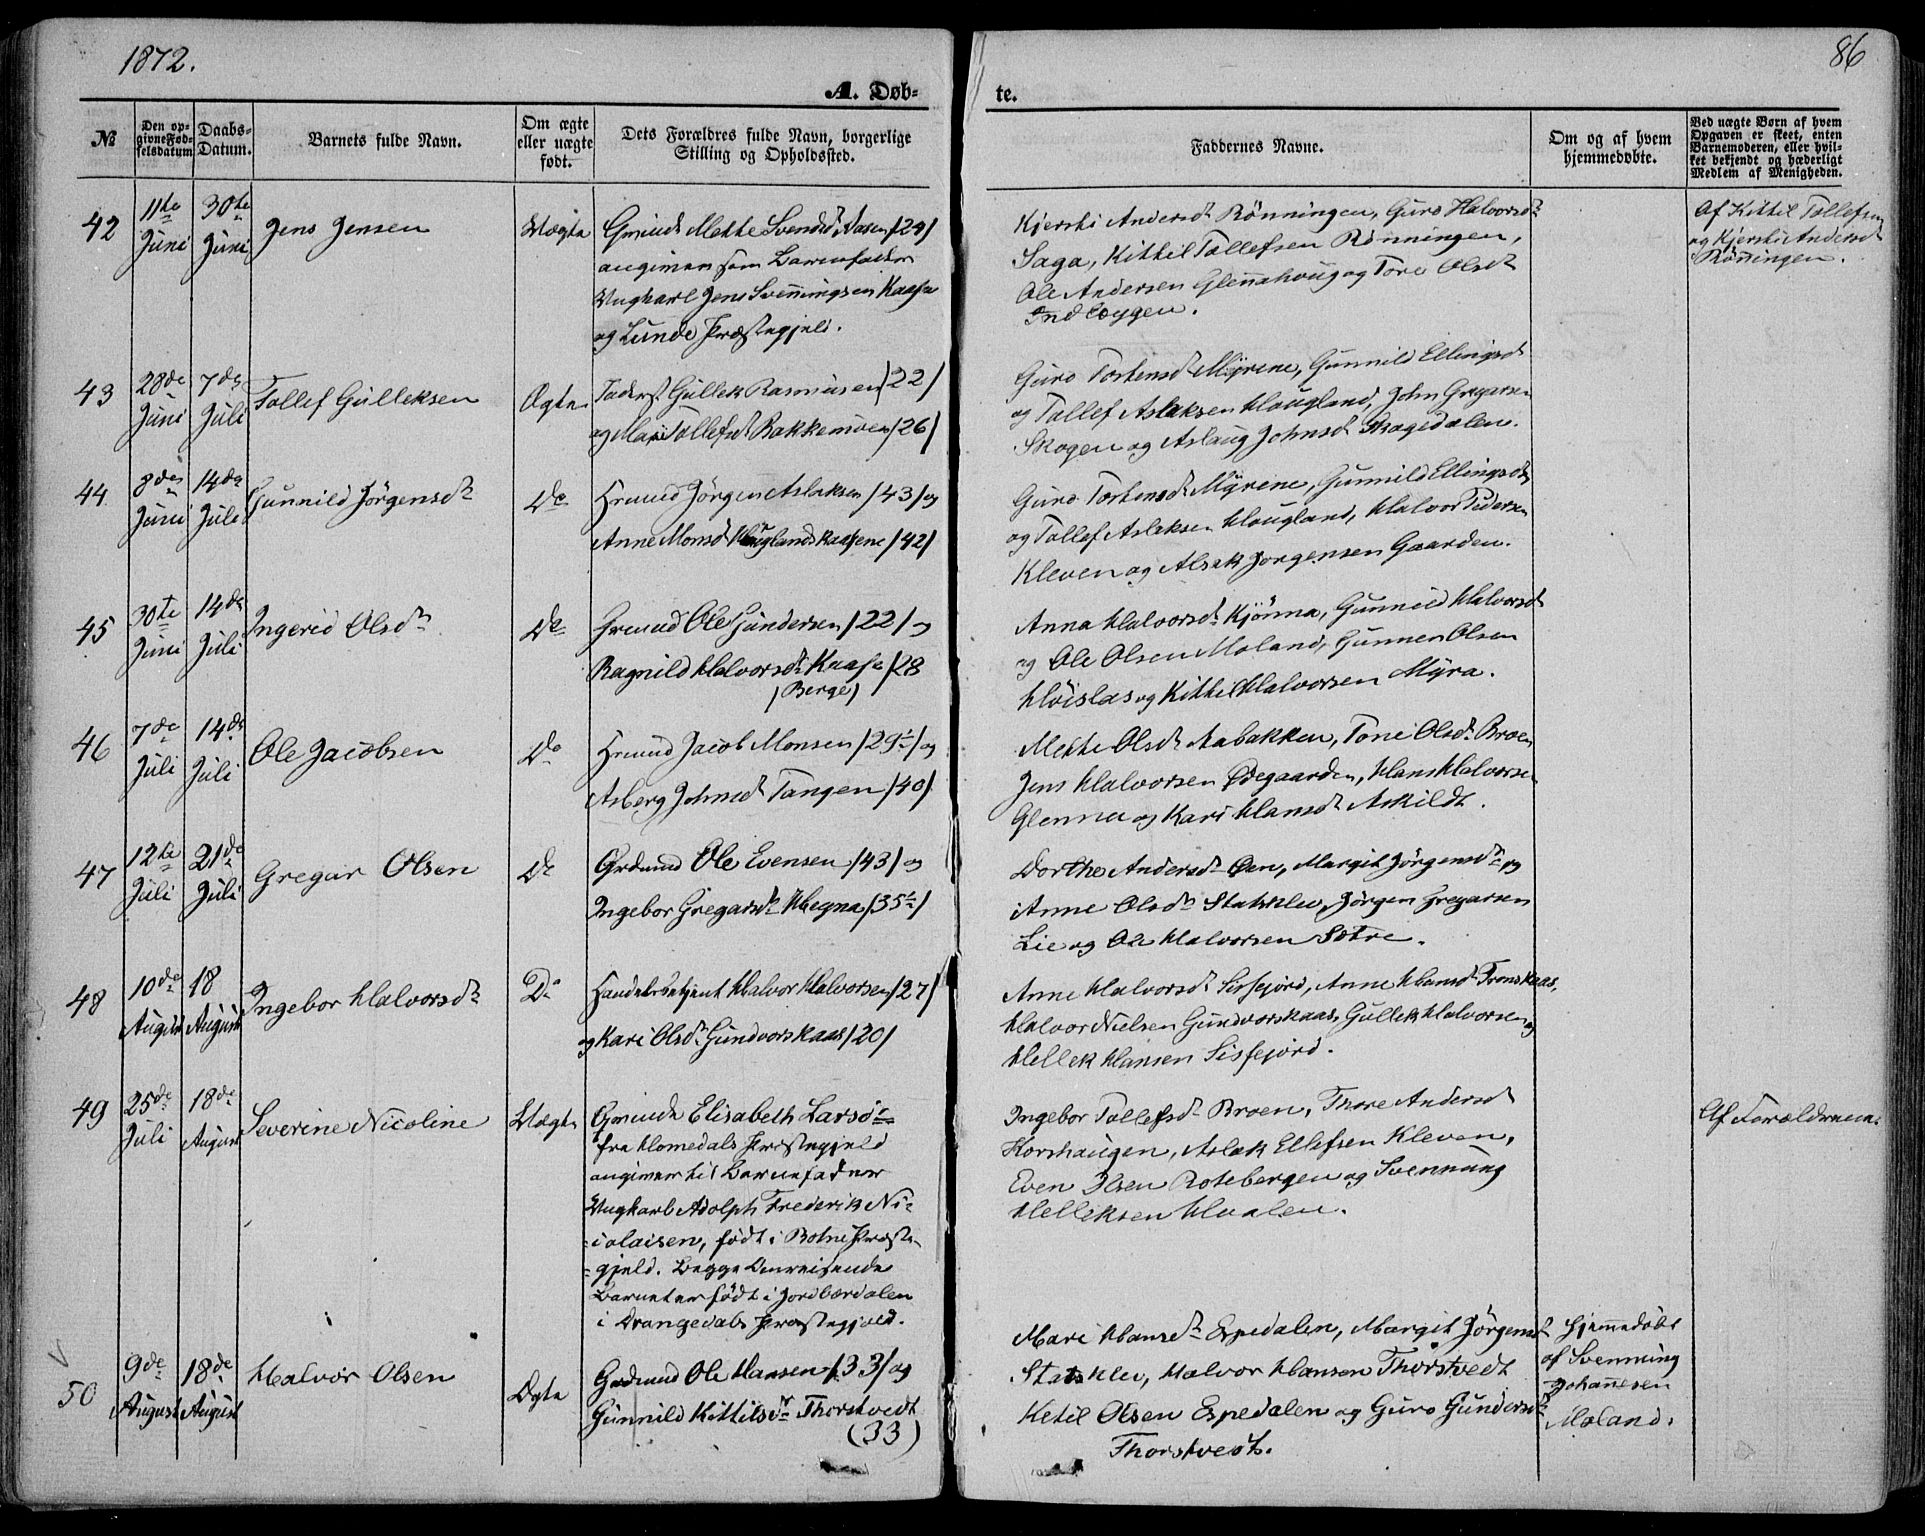 1872.
86
A. Døb-
te.
№
Den op-
givne Fød-
selsdatum
Daabs-
Datum.
Barnets fulde Navn.
Om ægte
eller uægte
født.
Dets Forældres fulde Navn, borgerlige
Stilling og Opholdssted.
Faddernes Navne.
Om og af hvem
hjemmedøbte.
Ved uægte Børn af hvem
Opgaven er skeet, enten
Barnemoderen, eller hvil-
ket bekjendt og hæderligt
Medlem af Menigheden.
42
11te
Juni
30te
Juni
Jens Jensen
Uægte
Mette Svendsd. Aasen /29/
angiven som Barnefader
Ungkarl Jens Svenningsen Kaasa
og Lunde Præstegjeld.
Kjersti Andersd. Rönningen, Guro Halvorsd.
Saga, Kittil Tollefsen Rönningen,
Ole Andersen Glennahoug og Tore Olsd.
Indlæggen.
Af Kittil Tollefsen
og Kjersti Andersd.
Rönningen.
43
28de
Juni
7de
Juli
Tollef Gulleksen
Ægte
Gullek Rasmusen /22/
og Mari Tollefsd. Bakkemoen /26/
Guro Torstensd. Myrene, Gunnild Ellingsd.
og Tollef Aslaksen Hougland, John Gregersen
Skogen og Aslaug Johnsd. Skogedalen.
44
8de
Juni
14de
Juli
Gunnild Jörgensd.
Do
Hrmnd Jörgen Aslaksen /43/ og
Anne Monsd. Houglandskaasene /42/
Guro Torstensd. Myrene, Gunnild Ellingsd.
og Tollef Aslaksen Hougland, Halvor Pedersen
Kleven og Alsak Jorgensen Gaarden.
45
30te
Juni
14de
Juli
Ingerid Olsd.
Do
Grmnd Ole Gundersen /22/ og
Ragnild Halvorsd. Kaasa /28
(Berge)
Anna Halvorsd. Kjönna, Gunnild Halvorsd.
og Ole Olsen Moland, Gunner Olsen
Höislas og Kittil Halvorsen Myra.
46
7de
Juli
14de
Juli
Ole Jacobsen
Do
Hrmnd Jacob Monsen /29½/ og
Asberg Johnsd. Tangen /40/
Mette Olsd. Aabakken, Tone Olsd. Broen
Jens Halvorsen Ödegaarden, Hans Halvorsen
Glenna og Kari Hansd. Askildt.
47
12te
Juli
21de
Juli
Gregar Olsen
Do
Grdmnd Ole Evensen /43/ og
Ingebor Gregarsd. Hegna /35½/
Dorthe Andersd. Öen, Margit Jörgensd. og
Anne Olsd. Statsklev, Jörgen Gregarsen
Lie og Ole Halvorsen Sætre.
48
10de
August
18
August
Ingebor Halvorsd.
Do
Handelsbetjent Halvor Halvorsen /27/
og Kari Olsd. Gundvorskaas /20/
Anne Halvorsd. Sisjord, Anne Hansd. Tronskaas,
Halvor Nielsen Gundvorskaas, Gullek Halvorsen og
Hellek Hansen Sisjord.
49
25de
Juli
18de
August
Severine Nicoline
Uægte
Elisabeth Larsd.
fra Homedals Præstegjeld
angiver til Barnefader
Ungkarl Adolph Frederik Ni-
colaisen, født i Botne Præste-
gjeld. Begge Omreisende
Barnet er født i Jordbærdalen
i Drangedals Præstegjeld.
Ingebor Tollefsd. Broen, Thore Andersd.
Horshaugen, Aslak Ellefsen Kleven,
Even Olsen Rotebergen og Svennung
Helleksen Haalen.
Af Forældrene.
50
9de
August
18de
August
Halvor Olsen
Ægte
Grdmnd Ole Hansen /33/ og
Gunnild Kittilsd. Thorstvedt
(33)
Mari Hansd. Espedalen, Margit Jörgensd.
Statsklev, Halvor Hansen Thorstvedt
Ketil Olsen Espedalen og Guro Gundersd.
Thorstvedt.
Hjemmedöbt
af Svenning
Johannesen
Moland.